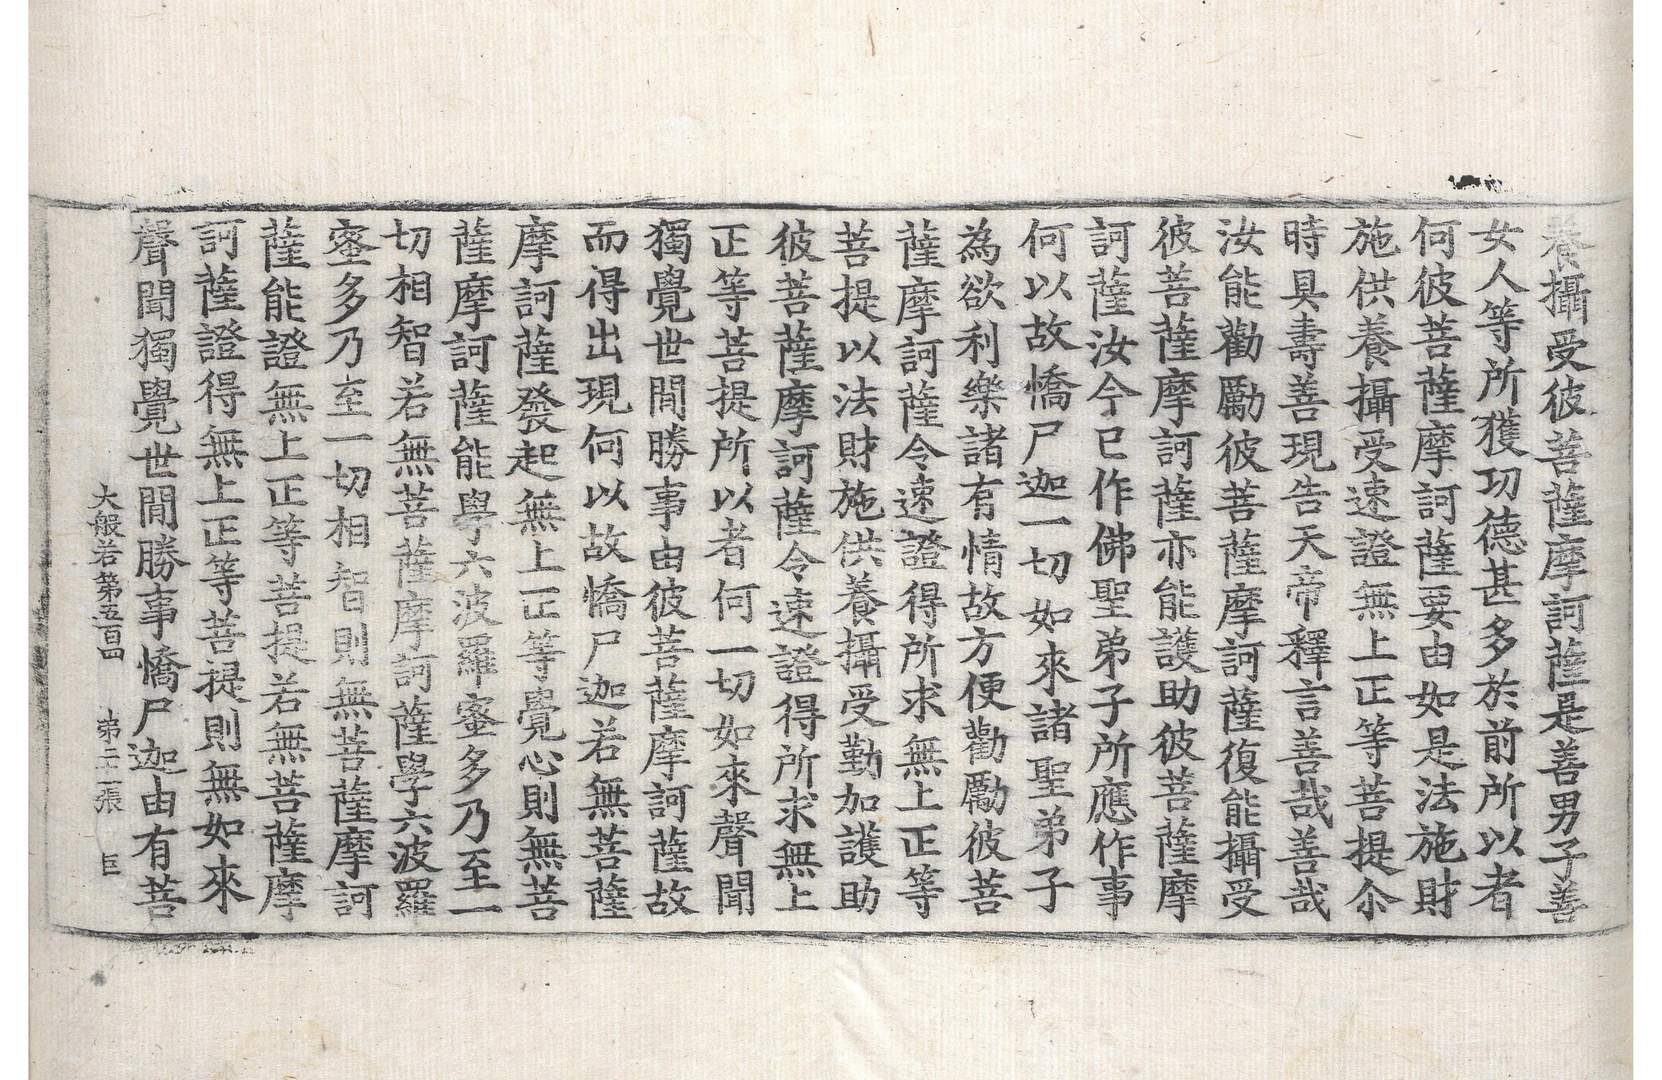 養攝受彼菩薩摩訶薩是善男子善
女人等所獲功德甚多於前所以者
何彼菩薩摩訶薩要由如是法施財
施供養攝受速證無上正等菩提尒
時具壽善現告天帝釋言善哉善哉
汝能勸勵彼菩薩摩訶薩復能攝受
彼菩薩摩訶薩亦能護助彼菩薩摩
訶薩汝今已作佛聖弟子所應作事
何以故憍尸迦一切如來諸聖弟子
為欲利樂諸有情故方便勸勵彼菩
薩摩訶薩令速證得所求無上正等
菩提以法財施供養攝受勤加護助
彼菩薩摩訶薩令速證得所求無上
正等菩提所以者何一切如來聲聞
獨覺世間勝事由彼菩薩摩訶薩故
而得出現何以故憍尸迦若無菩薩
摩訶薩發起無上正等覺心則無菩
薩摩訶薩能學六波羅蜜多乃至一
切相智若無菩薩摩訶薩學六波羅
蜜多乃至一切相智則無菩薩摩訶
薩能證無上正等菩提若無菩薩摩
訶薩證得無上正等菩提則無如來
聲聞獨覺世間勝事憍尸迦由有菩
大般若第五百四 第二十一張 巨